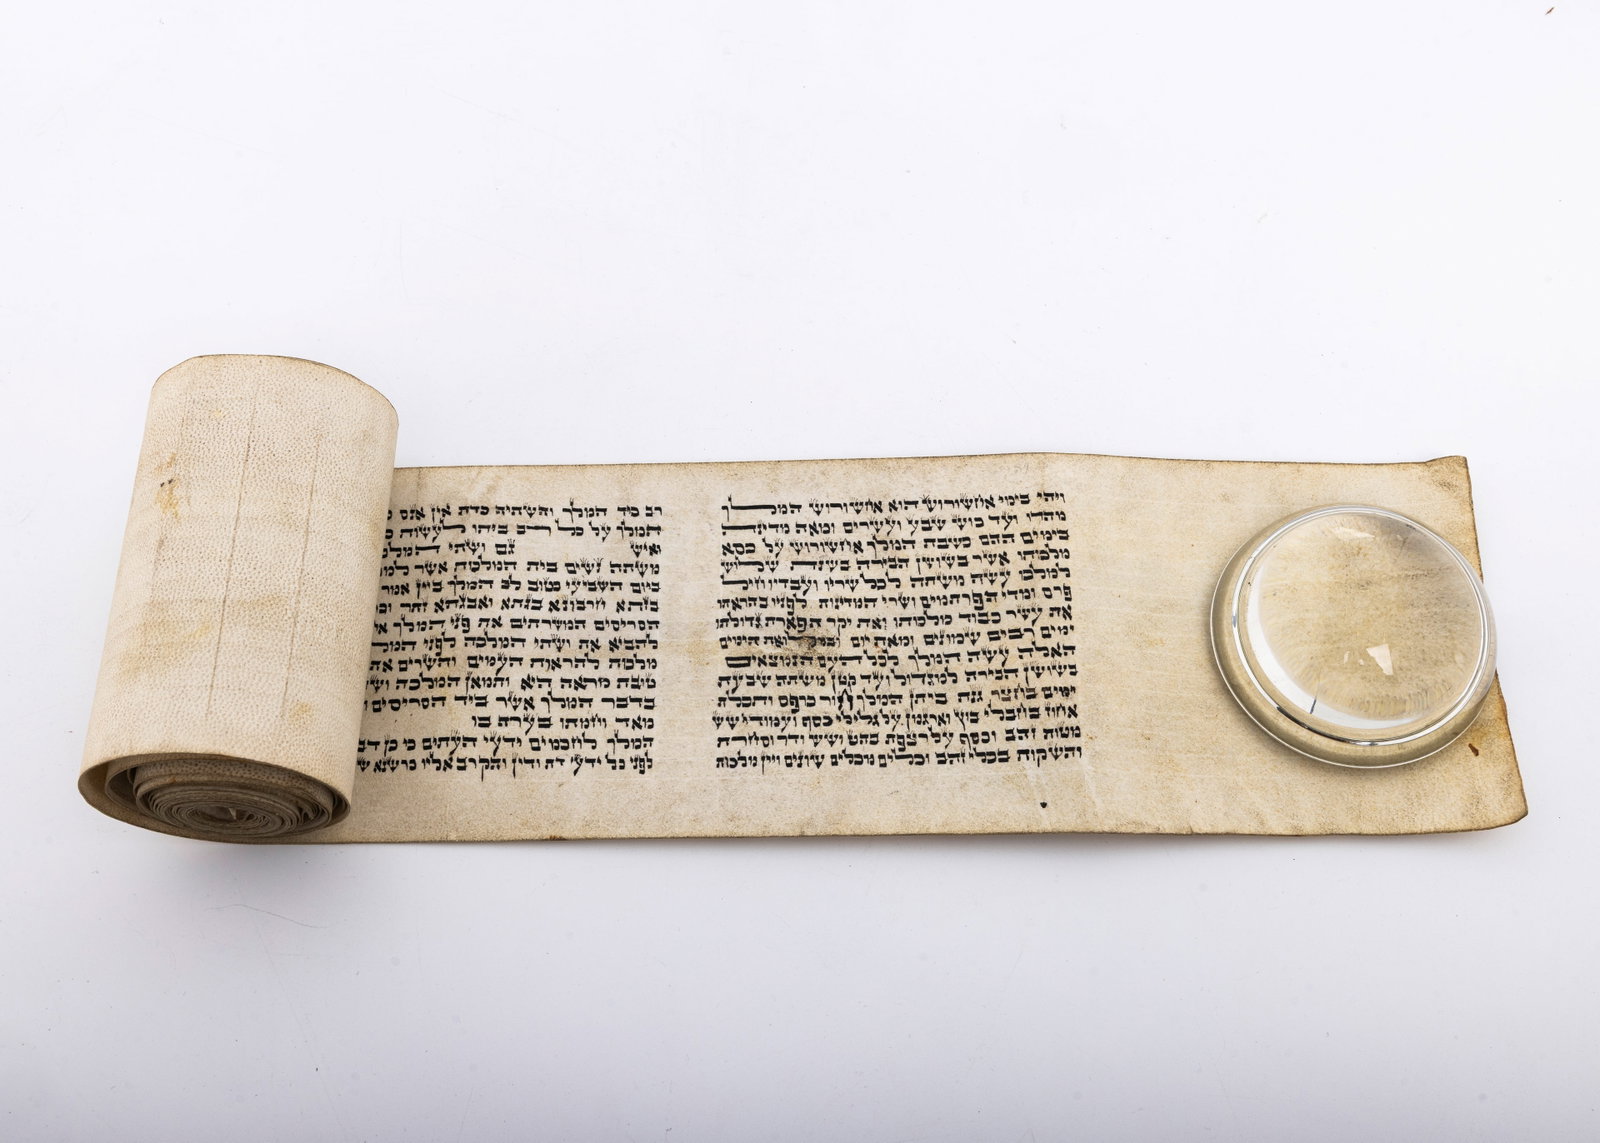 ויהי בימי אחשורוש הוא אחשורוש המלך
מהדו ועד כוש שבע ועשרים ומאה מדינה
בימים ההם כשבת המלך אחשורוש על כסא
מלכותו אשר בשושן הבירה בשנת שלוש
למלכו עשה משתה לכל שריו ועבדיו חיל
פרס ומדי הפרתמים ושרי המדינות לפניו בהראתו
את עשר כבוד מלכותו ואת יקר תפארת גדולתו
ימים רבים שמונים ומאת יום הימים
האלה עשה המלך לכל העם הנמצאים
בשושן הבירה למגדול ועד קטן משתה שבעת
ימים בחצר גנת ביתן המלך חור כרפס ותכלת
אחוז בחבלי בוץ וארגמן על גלילי כסף ועמודי שש
מטות זהב וכסף על רצפת בהט ושש ודר וסחרת
והשקות בכלי זהב וכלים מכלים שונים ויין מלכות
רב כיד המלך והשתיה כדת אין אנס
המלך על כל רב ביתו לעשות
ואיש גם ושתי
משתה נשים בית המלכות אשר
ביום השביעי כטוב לב המלך ביין אמר
בזתא חרבונא בגתא ואבגתא זתר
הסריסים המשרתים את פני המלך
להביא את ושתי המלכה לפני
מלכות להראות העמים והשרים את
טובת מראה היא ותמאן המלכה
בדבר המלך אשר ביד הסריסים
מאד וחמתו בערה בו
המלך לחכמים ידעי העתים כי כן
לפני כל ידעי דת ודין והקרב אליו כרשנא